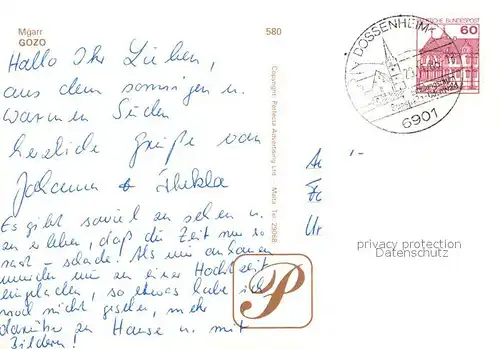 Mġarr
GOZO
580
Hallo Ihr Lieben,
aus dem sonnigen u.
warmen Süden
herzliche Grüße von
Johanna + Thekla
Es gibt soviel zu sehen u.
zu erleben, daß die Zeit nur so
rast - schade! Als wir ankamen
wurden wir zu einer Hochzeit
eingeladen, so etwas habe ich
noch nicht gesehen, mehr
darüber zu Hause u. mit
Bildern!
Copyright Perfecta Advertising Ltd. Malta Tel: 29068
P
DOSSENHEIM
6901
DEUTSCHE BUNDESPOST
60
privacy protection
Datenschutz